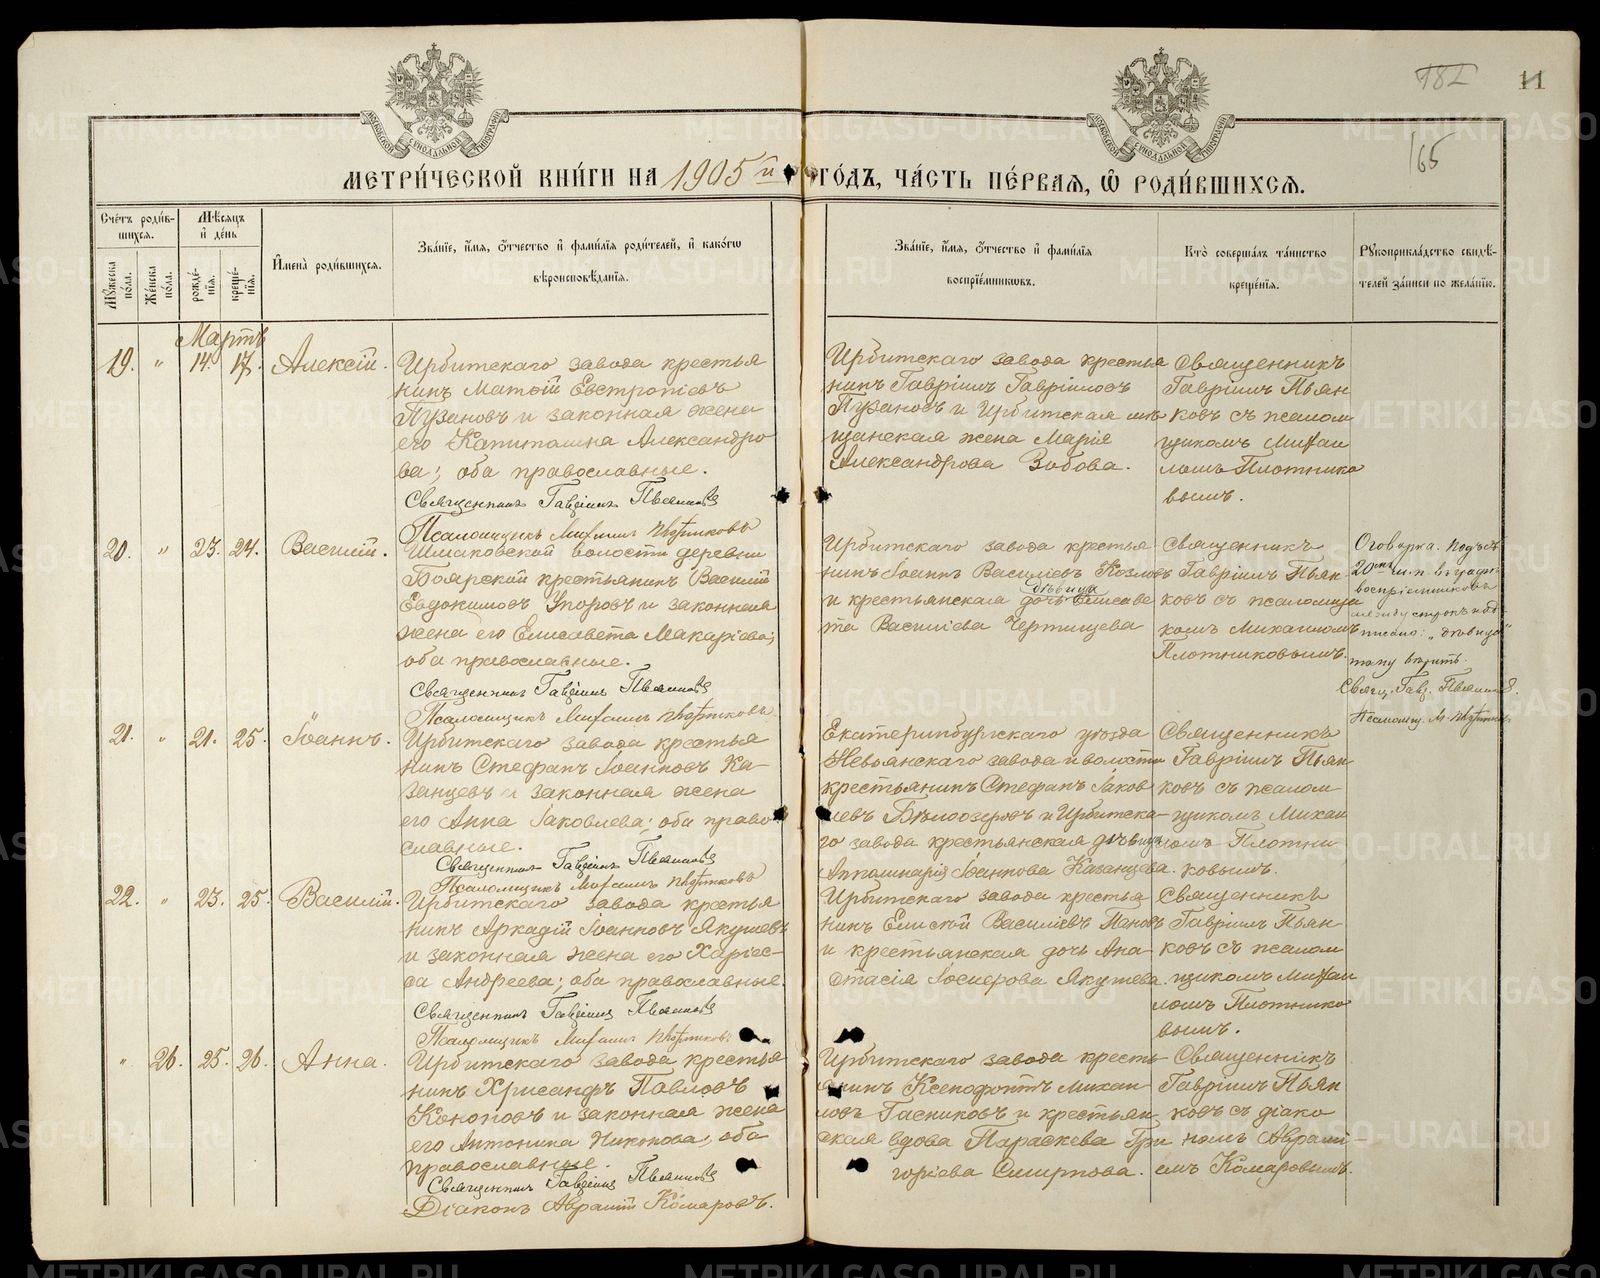 182
11
165
МЕТРИ́ЧЕСКОЙ КНИ́ГИ НА 1905 й ГО́ДЪ, ЧА́СТЬ ПЕ́РВАЯ, Ѿ РОДИ́ВШИХСЯ.
Сче́тъ роди́в-
шихся.
Му́жеска по́ла.
Же́нска по́ла.
Мѣ́сяцъ
и҆ де́нь
рожде́-
нїя.
креще́-
нїя.
И҆мена̀ роди́вшихся.
Зва́нїе, и҆́мя, о҆́тчество и҆ фами́лїя роди́телей, и҆ како́гѡ
вѣроисповѣ́данїя.
Зва́нїе, и҆́мя, о҆́тчество и҆ фами́лїя
воспрїе́мникѡвъ.
Кто̀ соверша́лъ та́инство
креще́нїя.
Рꙋкоприкла́дство свидѣ́-
телей за́писи по жела́нїю.
Мартъ
19. " 14. 17. Алексій.
Ирбитскаго завода крестья
нинъ Матѳій Евстропіевъ
Пузановъ и законная жена
его Капитолина Александро
ва; оба православные.
Священникъ Гавріилъ Пьянковъ
Псаломщикъ Михаилъ Плотниковъ
Ирбитскаго завода крестья
нинъ Гавріилъ Гавріиловъ
Пузановъ и Ирбитская мѣ
щанская жена Марія
Александрова Зобова.
Священникъ
Гавріилъ Пьян
ковъ съ псалом
щикомъ Михаи
ломъ Плотнико
вымъ.
20. " 23. 24. Василій.
Шмаковской волости деревни
Боярской крестьянинъ Василій
Евдокимовъ Упоровъ и законная
жена его Елисавета Макаріева;
оба православные.
Священникъ Гавріилъ Пьянковъ
Псаломщикъ Михаилъ Плотниковъ
Ирбитскаго завода крестья
нинъ Іоаннъ Василіевъ Козловъ
дѣвица
и крестьянская дочь Елисаве
та Василіева Чертищева
Священникъ
Гавріилъ Пьян-
ковъ съ псаломщи
комъ Михаиломъ
Плотниковымъ.
Оговорка. Подъ №
20мъ м. п. въ графѣ
воспріемниковъ
между строкъ надъ-
писано: „дѣвица"
тому вѣрить.
Свящ. Гавр. Пьянковъ.
Псаломщ. М. Плотниковъ
21. " 21. 25. Іоаннъ.
Ирбитскаго завода крестья
нинъ Стефанъ Іоанновъ Ка-
занцевъ и законная жена
его Анна Іаковлева; оба право
славные.
Священникъ Гавріилъ Пьянковъ
Псаломщикъ Михаилъ Плотниковъ
Екатеринбургскаго уѣзда
Невьянскаго завода и волости
крестьянинъ Стефанъ Іаков
левъ Бѣлоозеровъ и Ирбитска-
го завода крестьянская дѣвица
Апполинарія Іоаннова Казанцева.
Священникъ
Гавріилъ Пьян
ковъ съ псалом
щикомъ Михаи
ломъ Плотни
ковымъ.
22. " 23. 25. Василій.
Ирбитскаго завода крестья
нинъ Аркадій Іоанновъ Якушевъ
и законная жена его Харіес-
са Андреева; оба православные.
Священникъ Гавріилъ Пьянковъ
Псаломщикъ Михаилъ Плотниковъ
Ирбитскаго завода крестья
нинъ Елисей Василіевъ Пановъ
и крестьянская дочь Ана-
стасія Іосиѳова Якушева.
Священникъ
Гавріилъ Пьян-
ковъ съ псалом
щикомъ Михаи
ломъ Плотнико
вымъ.
" 26. 25. 26. Анна.
Ирбитскаго завода крестья
нинъ Хрисанфъ Павловъ
Кононовъ и законная жена
его Антонина Никонова; оба
православные.
Священникъ Гавріилъ Пьянковъ
Діаконъ Авраамій Комаровъ.
Ирбитскаго завода кресть-
янинъ Ксенофонтъ Михаи
ловъ Гасниковъ и крестьян
ская вдова Параскева Гри
горіева Смирнова.
Священникъ
Гавріилъ Пьян
ковъ съ діако
номъ Авраамі-
емъ Комаровымъ.
METRIKI.GASO-URAL.RU